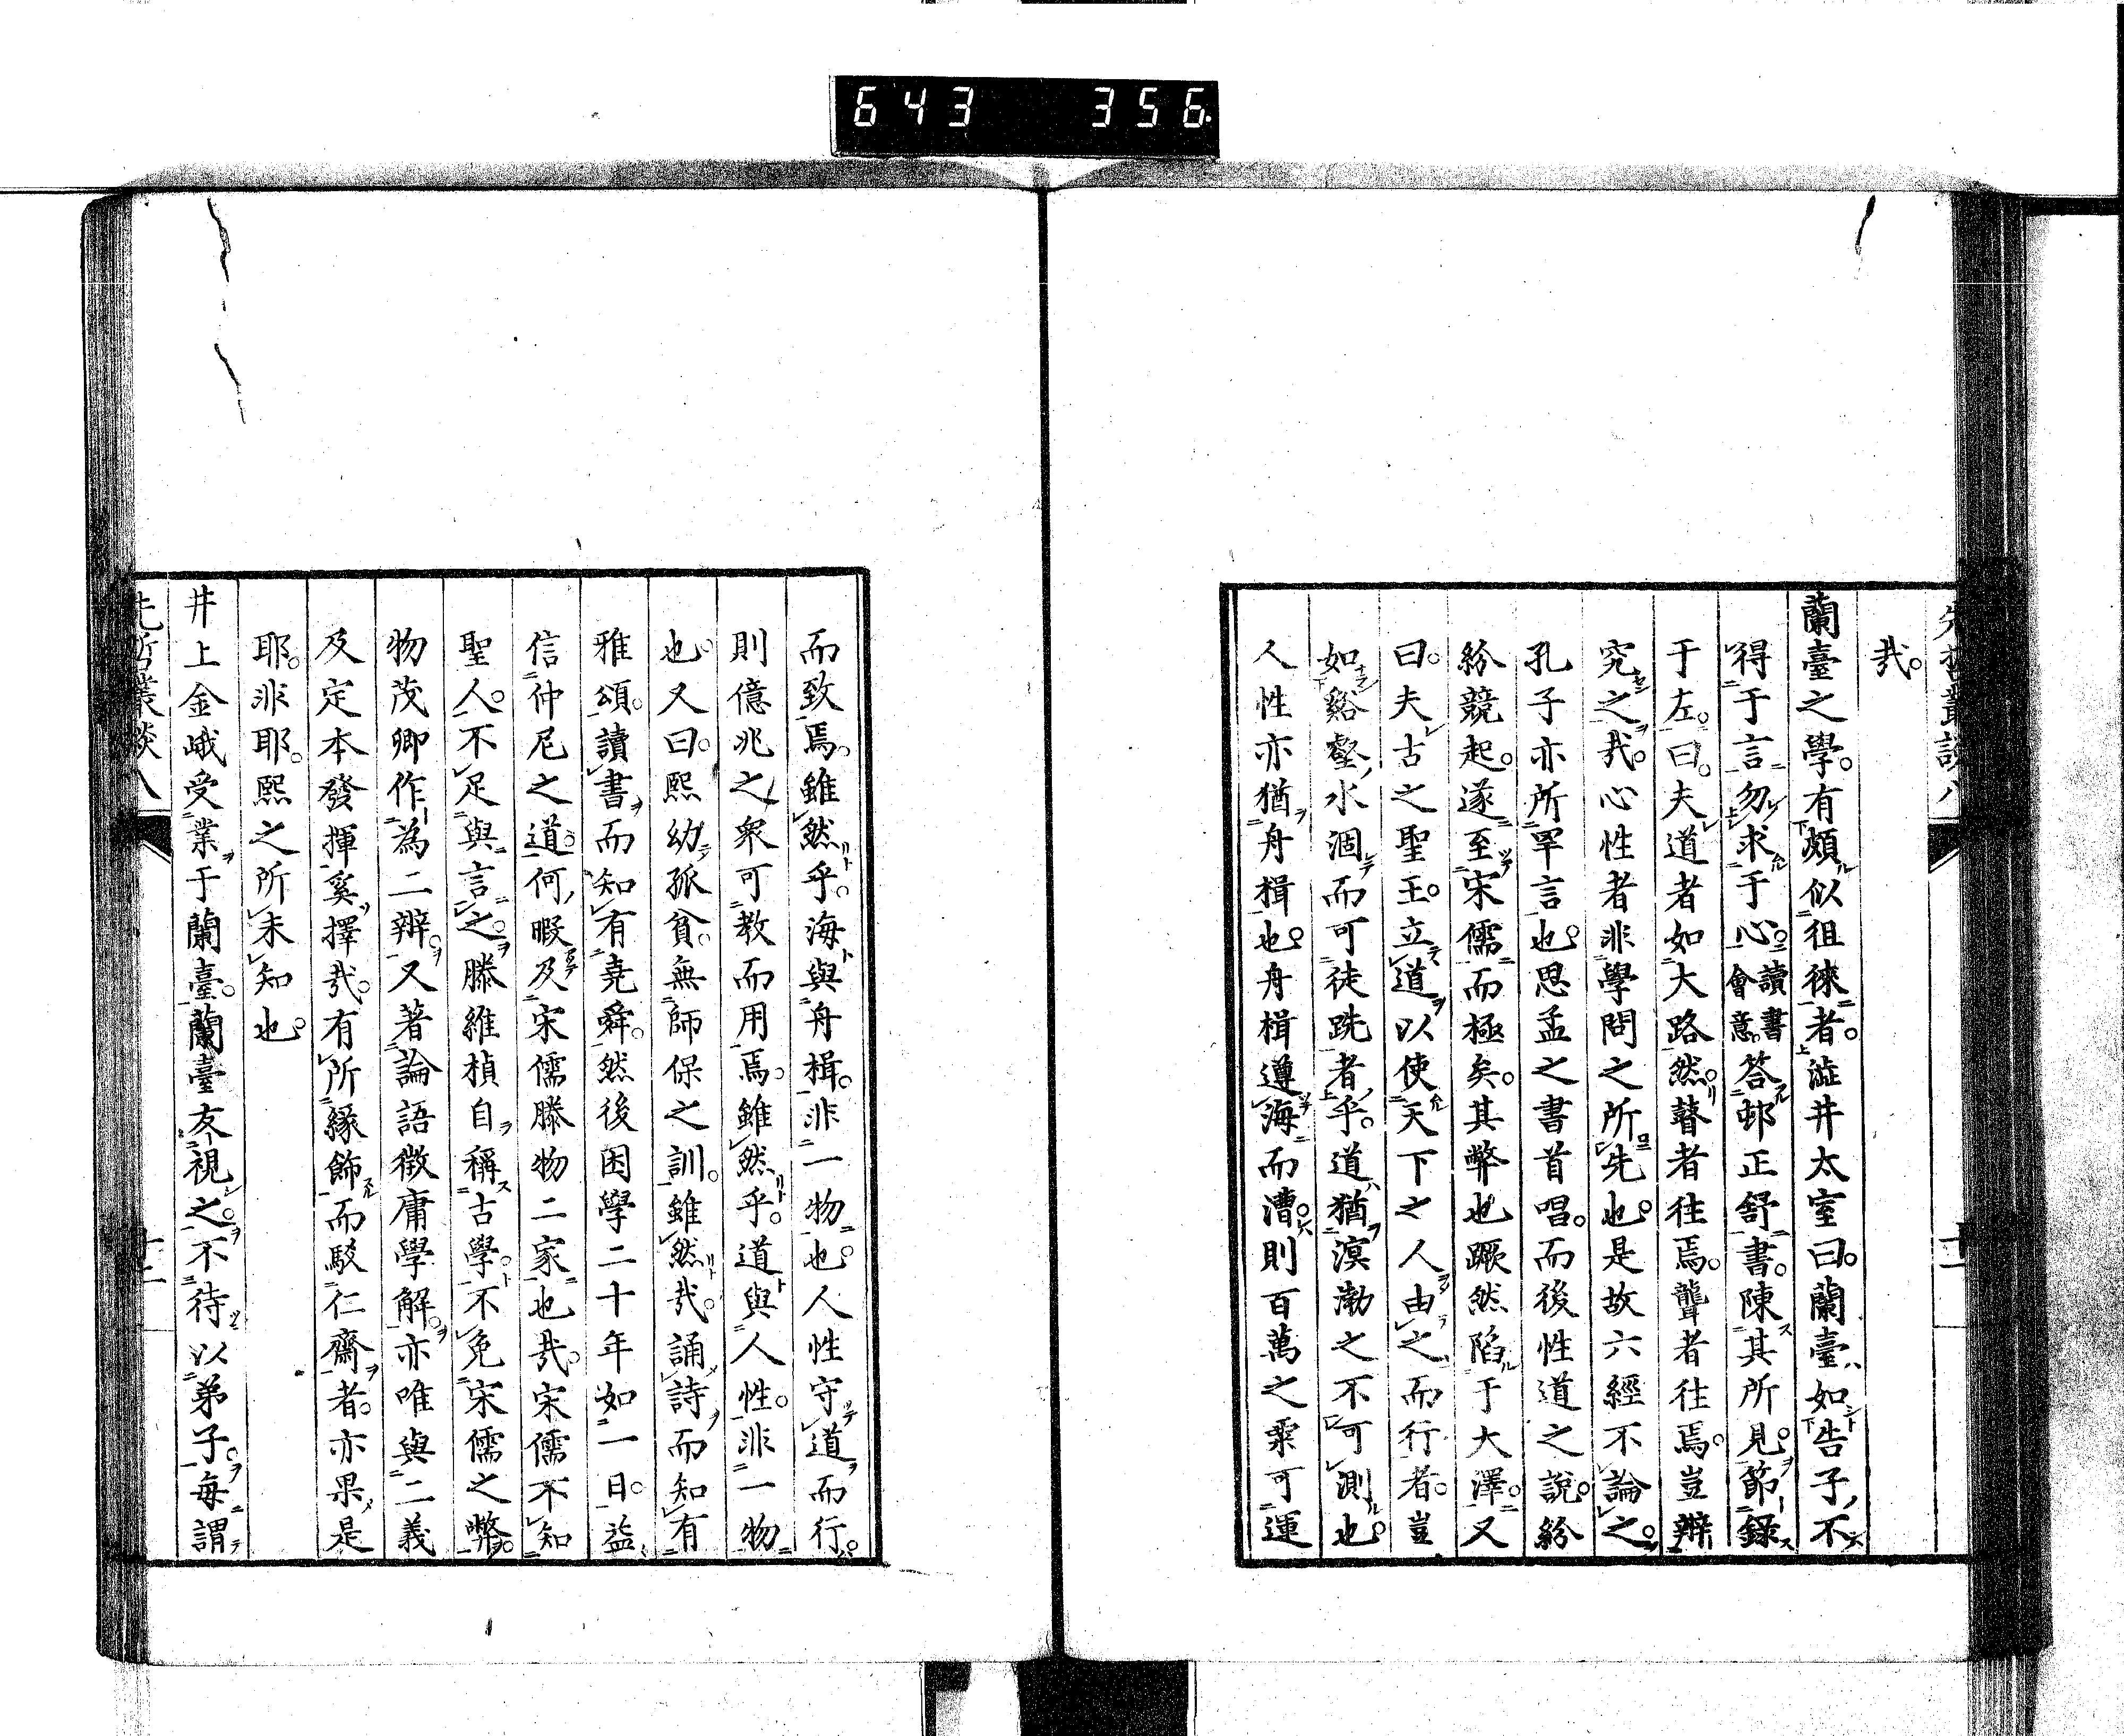 643 356
哉。
蘭臺之學。有頗似徂徠者。澁井太室曰。蘭臺如告子不
得于言勿求于心。讀書會意。答邨正舒書。陳其所見。節錄
于左。曰。夫道者如大路然。瞽者往焉。聾者往焉。豈辯
究之哉。心性者非學問之所先也。是故六經不論之。
孔子亦所罕言也。思孟之書首唱。而後性道之說。紛
紛競起。遂至宋儒而極矣。其弊也蹶然陷于大澤。又
曰。夫古之聖王。立道以使天下之人由之而行者。豈
如谿壑水涸而可徒跣者乎。道猶溟渤之不可測也。
人性亦猶舟楫也。舟楫遵海而漕。則百萬之粟可運
而致焉。雖然乎。海與舟楫。非一物也。人性守道而行。
則億兆之衆可教而用焉。雖然乎。道與人性。非一物
也。又曰。熙幼孤貧。無師保之訓。雖然哉。誦詩而知有
雅頌。讀書而知有堯舜。然後困學二十年如一日。益
信仲尼之道。何暇及宋儒滕物二家也哉。宋儒不知
聖人。不足與言之。滕維楨自稱古學。不免宋儒之弊。
物茂卿作為二辨。又著論語徵庸學解。亦唯與二義
及定本發揮奚擇哉。有所緣飾而駁仁齋者。亦果是
耶。非耶。熙之所未知也。
井上金峨受業于蘭臺。蘭臺友視之。不待以弟子。每謂
先哲叢談八